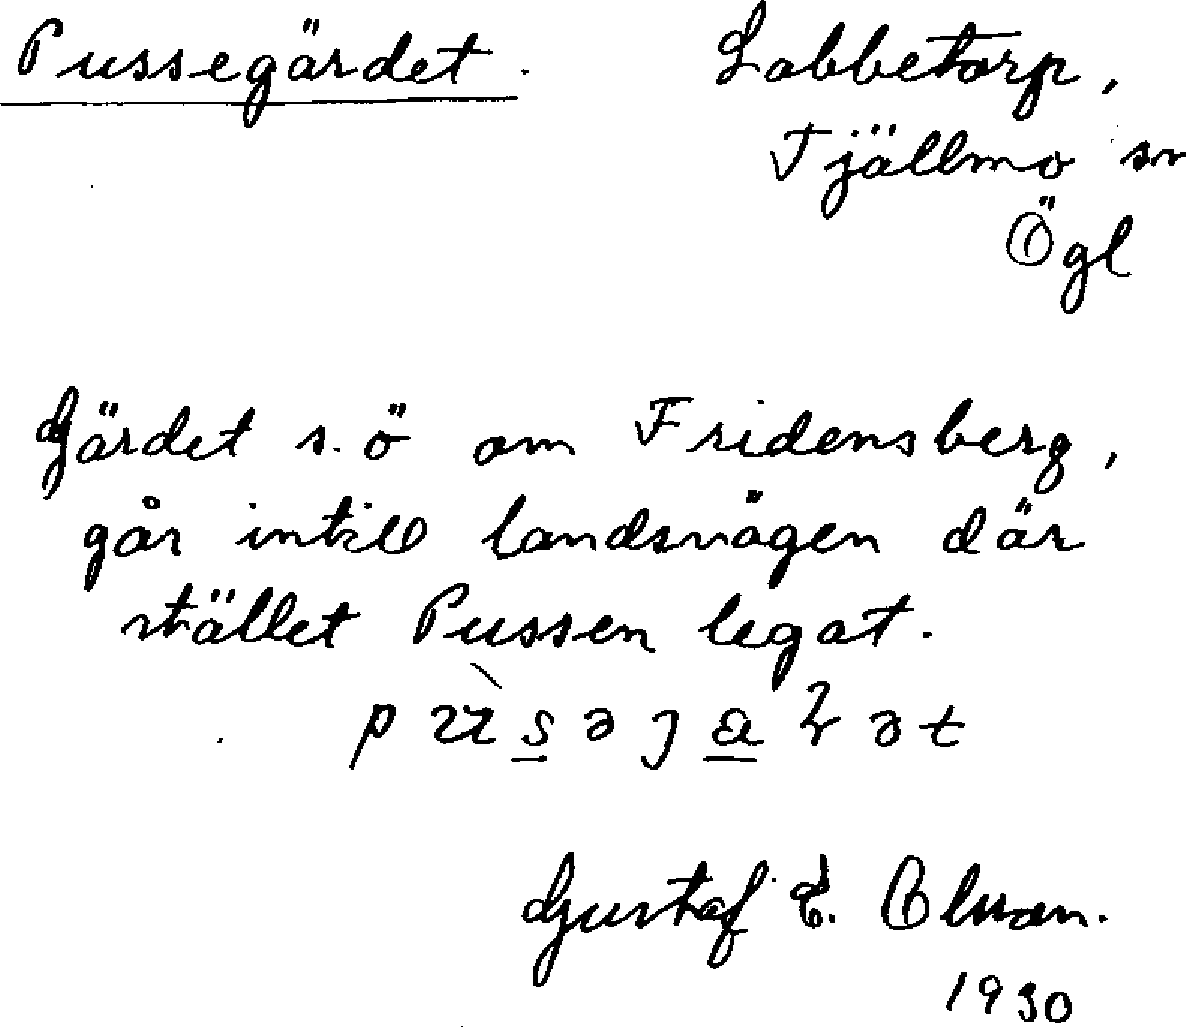 Pussegärdet.
Labbetorp,
Tjällmo sn
Ögl
Gärdet s.ö om Fridensberg,
går intill landsvägen där
stället Pussen legat.
Gustaf E. Olsson.
1930